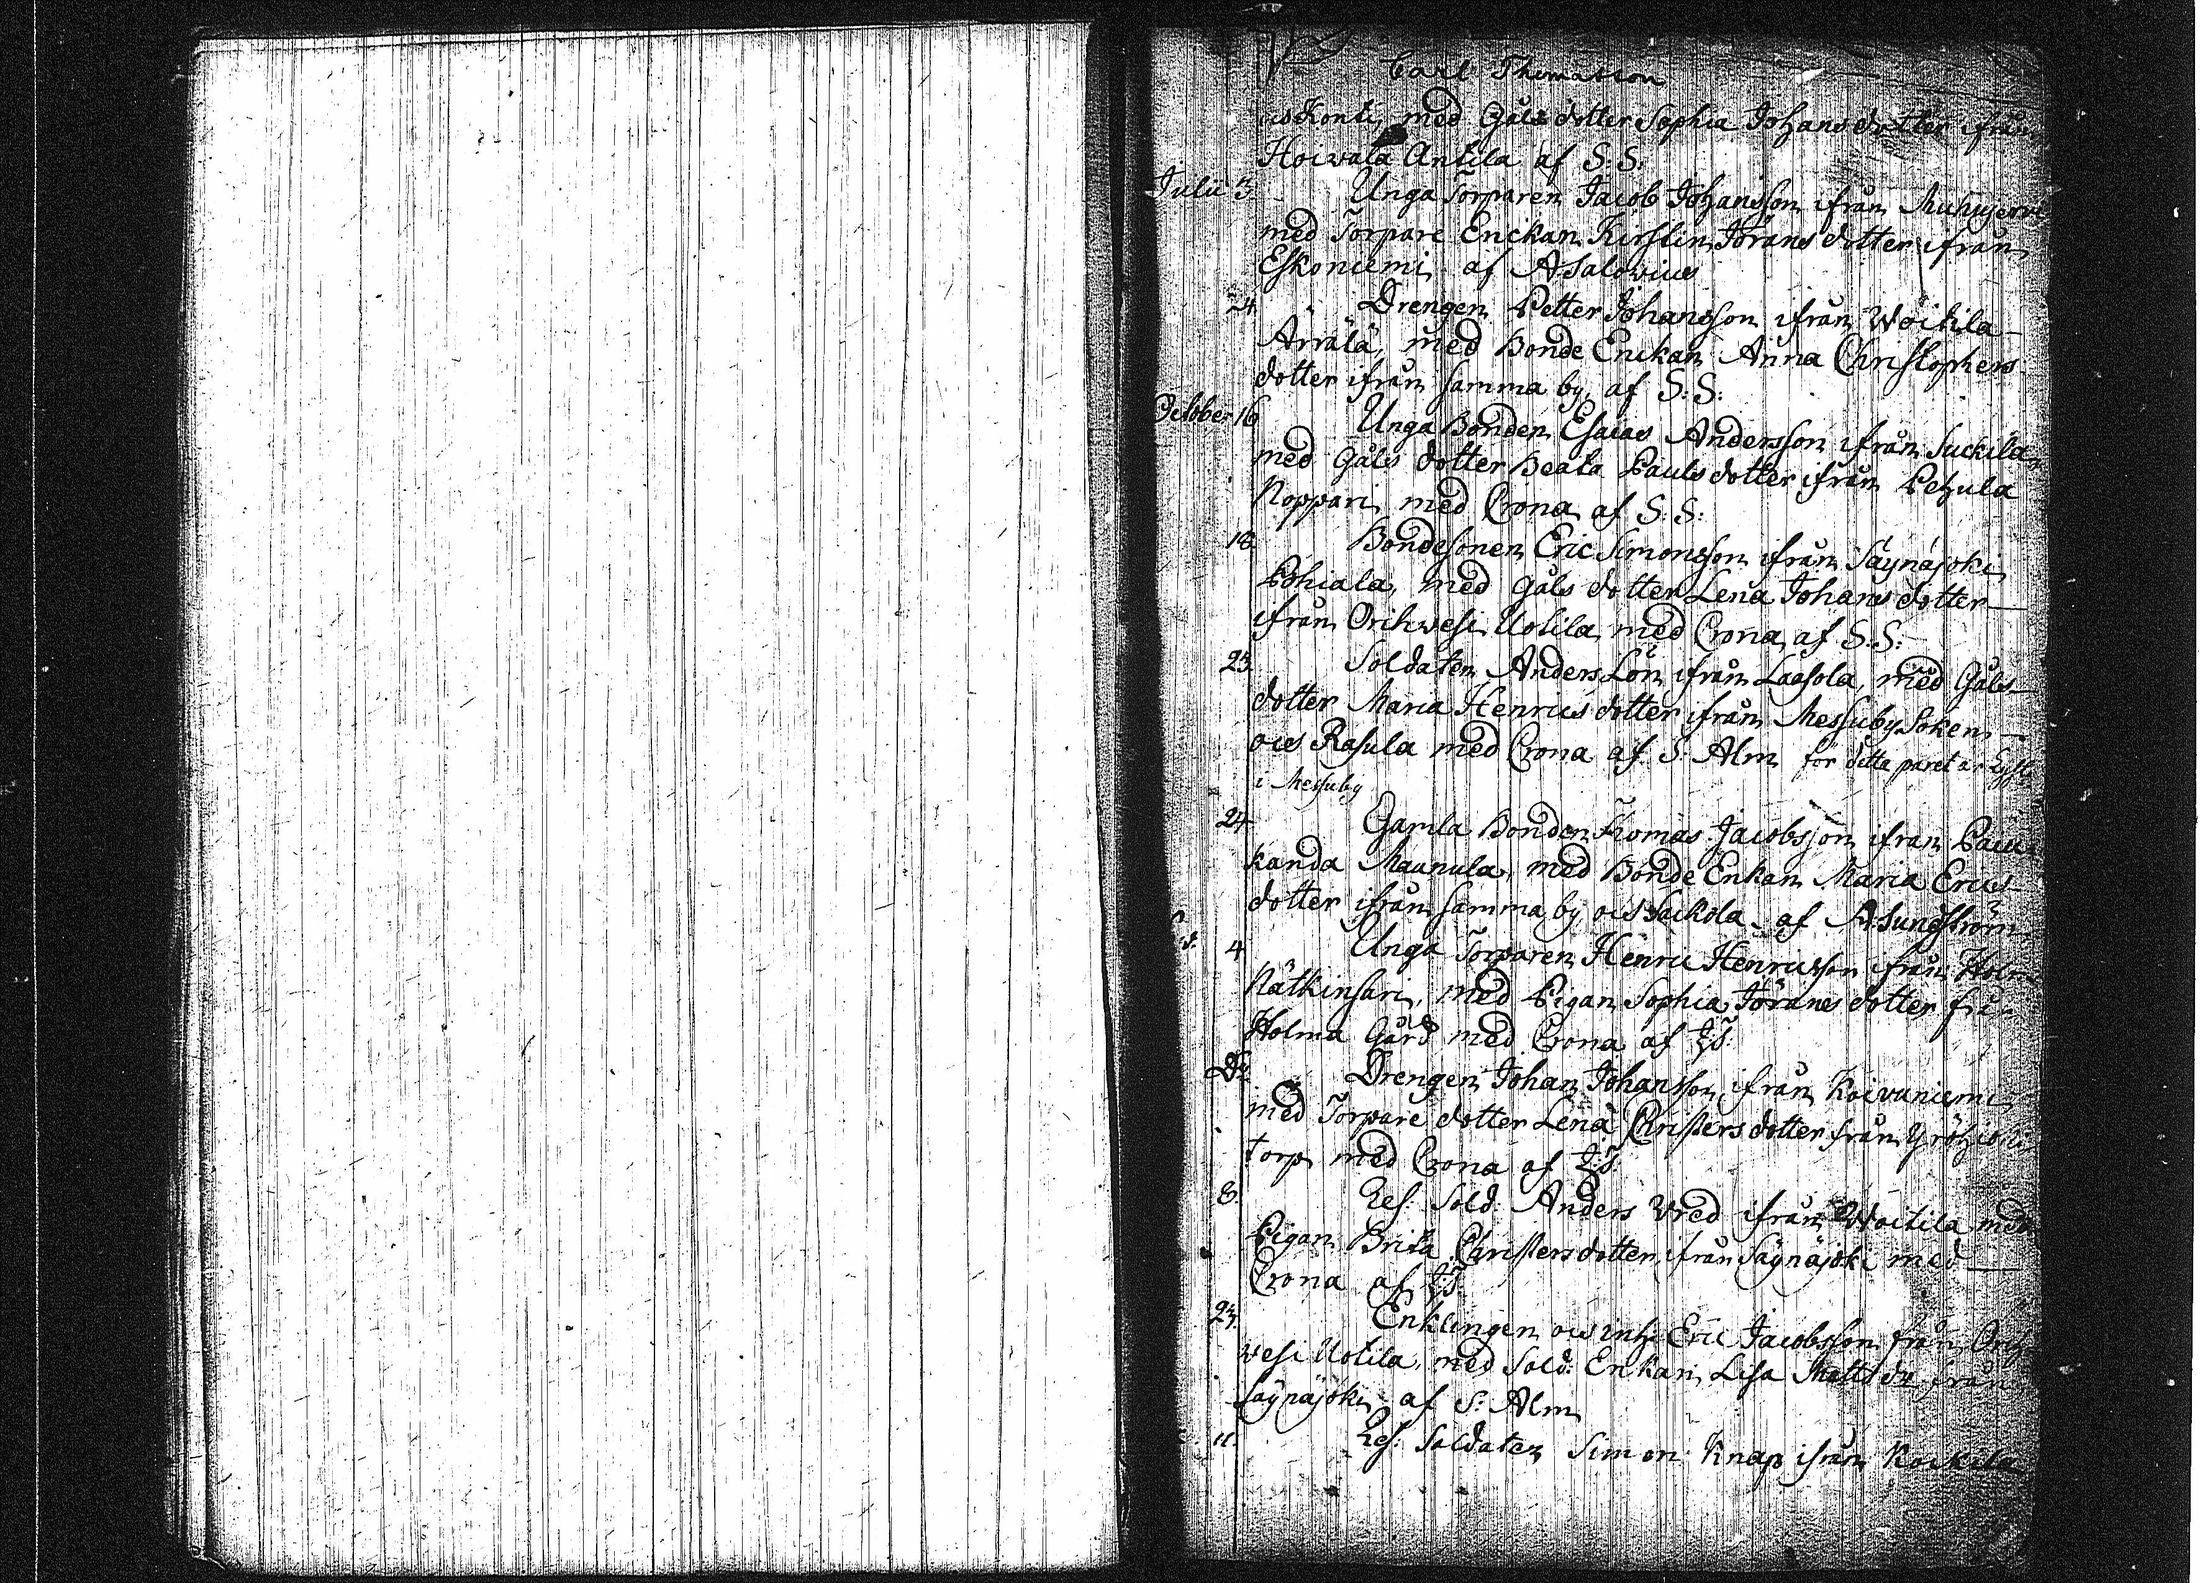 Carl Thomasson
och Konti, med Gåls dotter Sophia Johans dotter ifrån
Hoivala Antila af S. S:
Julii 3. Unga Torparen Jacob Johansson ifrån Muhujervi
med Torpare Enckan Kirstin Jörans dotter ifrån
Eskoniemi af A Salovius
24. Drengen Petter Johansson ifrån Woitila
Arrälä, med Bonde Enckan Anna Christophers
dotter ifrån samma by, af S: S:
October 16 Unga Bonden Esaias Andersson ifrån Suckila
med Gåls dotter Beata Pauls dotter ifrån Pehula
Noppari, med Crona af S: S:
18. Bondesonen Eric Simonsson ifrån Säynäjoki
Pohiala, med Gåls dotter Lena Johans dotter
ifrån Orihwesi Uotila med Crona af S. S:
23. Soldaten Anders Lön ifrån Laasola, med Gåls
dotter Maria Henrics dotter ifrån Messuby Soken
och Rasula med Crona af S: Alm för detta paret är Lyst
i Messuby
24 Gamla Bonden Thomas Jacobsson ifrån
kanda Maunula, med Bonde Enkan Maria Erics
dotter ifrån samma by och af A Sundström
4 Unga Torparen Henric Henricsson ifrån Holm
Nätkinsari, med Pigan Sophia Jörans dotter
Holma Gård med Crona af
Do Drengen Johan Johansson ifrån Koivuniemi
med Torpare dotter Lena Christers dotter från
torp med Crona af
8. Res. Sold Anders Vred ifrån Woitila med
Pigan Brita Christersdotter ifrån Säynäjoki med
Crona af
23. Enklingen och inh: Eric Jacobsson från Orih
wesi Uotila med Sold: Enkan Lisa Matts dr från
Säynäjoki af S: Alm
11. Res: Soldaten Simon Knap ifrån Koikila